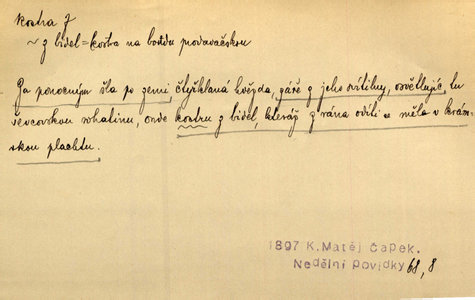 kostra ž
~ z bidel = kostra na boudu prodavačskou
Za ponocným šla po zemi čtyřklaná hvězda, záře z jeho svítilny, osvětlujíc tu
ševcovskou rohatinu, onde kostru z bidel, kteráž z rána odíti se měla v krám-
skou plachtu.
1897 K. Matěj Čapek.
Nedělní povídky 68, 8